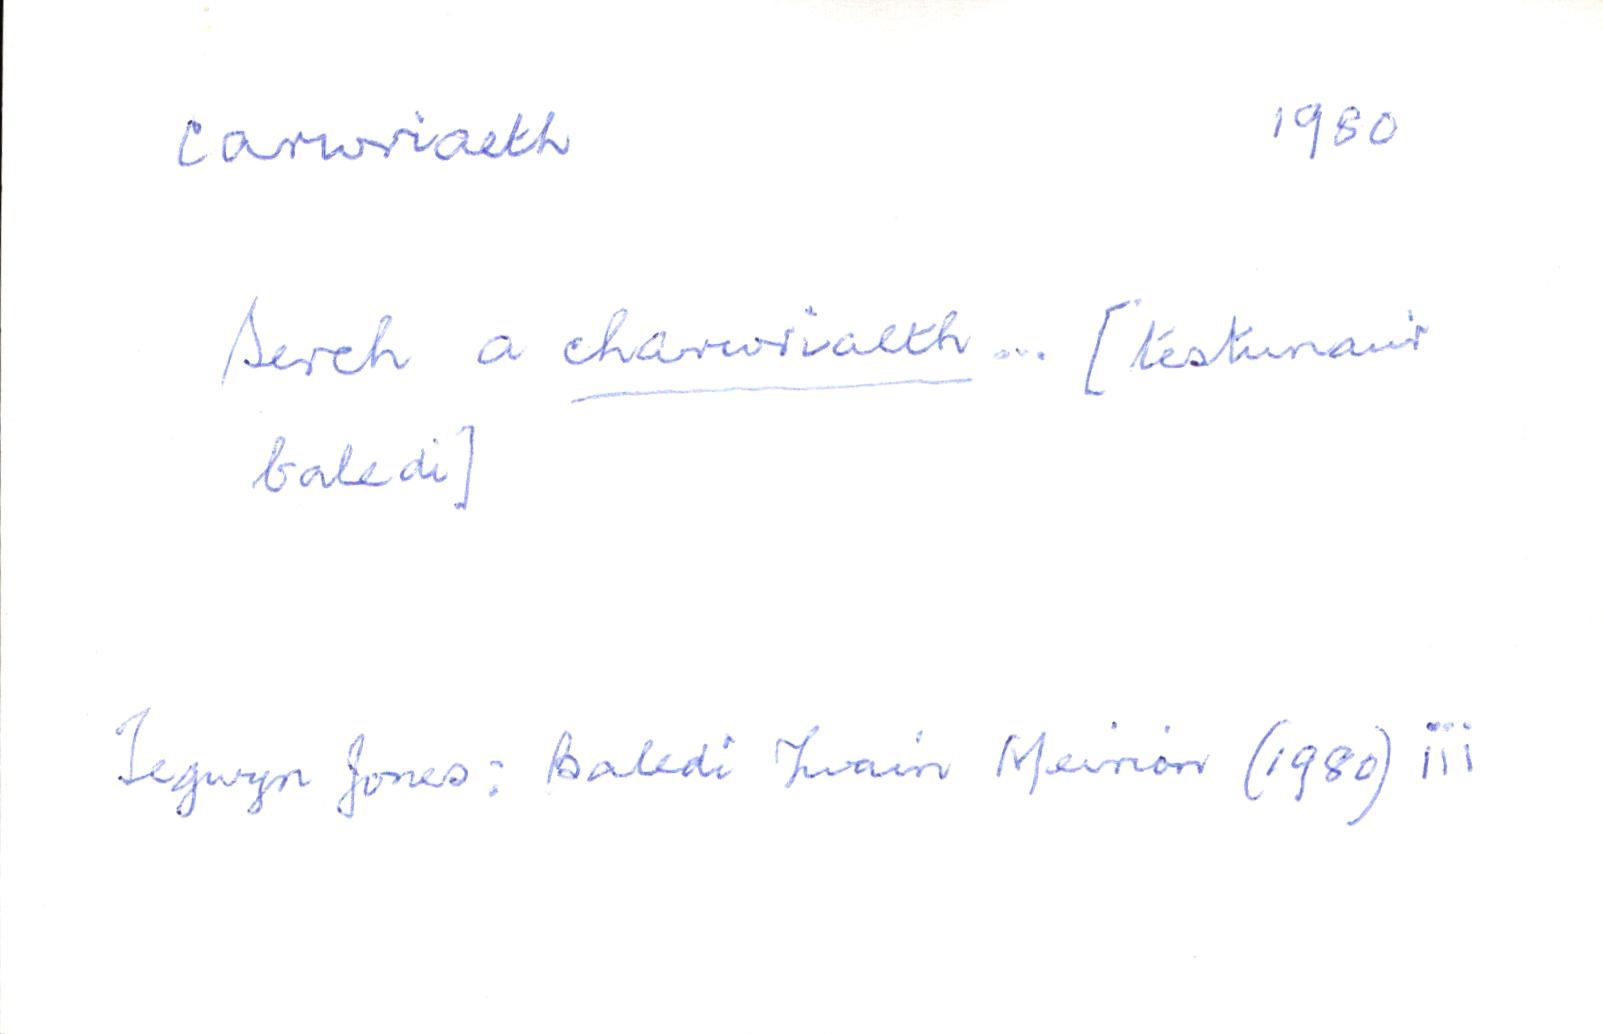 carwriaeth 1980
Serch a charwriaeth ... [testunau'r
baledi]
Tegwyn Jones: Baledi Ywain Meirion (1980) iii